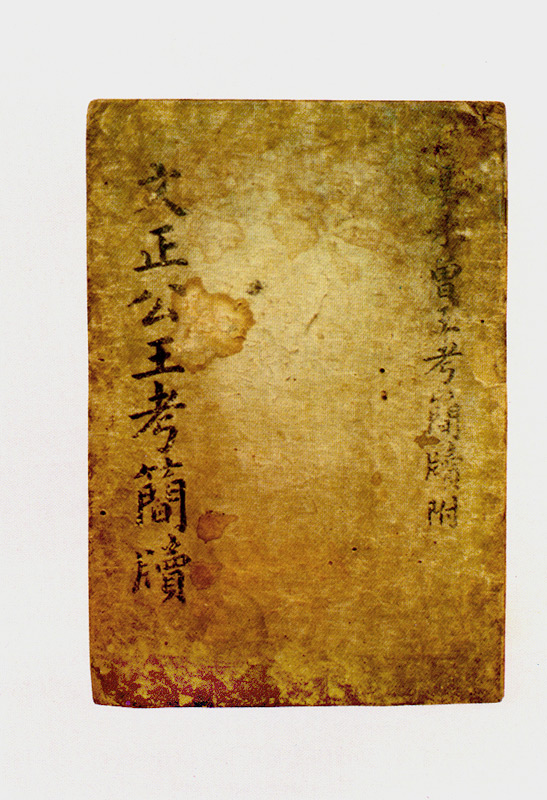 曾王考簡牘附
文正公王考簡牘